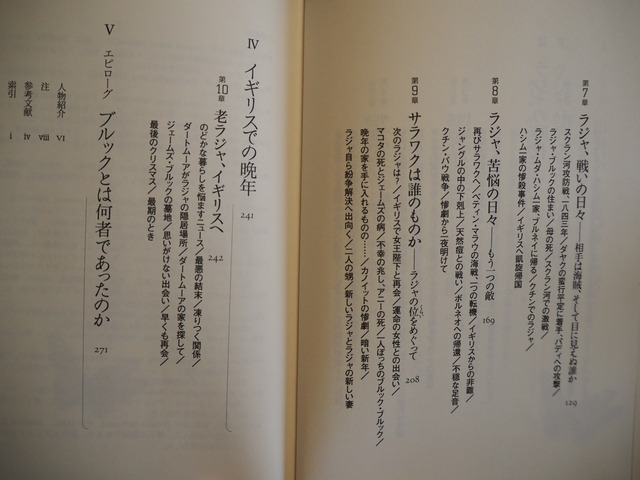 第7章 ラジャ、戦いの日々——相手は海賊、そして目に見えぬ誰か 129
スクラン河攻防戦、一八四三年／ダヤクの蛮行平定に着手、パディへの攻撃／
ラジャ・ブルックの住まい／母の死／スクラン河での激戦／
ラジャ・ムダ・ハシム一家、ブルネイに帰る／クチンでのラジャ／
ハシム一家の惨殺事件／イギリスへ凱旋帰国
第8章 ラジャ、苦悩の日々——もう一つの敵 169
再びサラワクへ／ベティン・マラウの海戦、二つの転機／イギリスからの非難／
ジャングルの中の下剋上／天然痘との戦い／ボルネオへの帰還／不穏な足音／
クチン・バウ戦争／惨劇から一夜明けて
第9章 サラワクは誰のものか——ラジャの位をめぐって 208
くらい
次のラジャは？／イギリスで女王陛下と再会／運命の女性との出会い／
マコタの死とジェームズの病／不幸の兆し、アニーの死／一人ぼっちのブルック・ブルック／
晩年の家を手に入れるものの……／カノイットの惨劇／暗い新年／
ラジャ自ら紛争解決へ出向く／二人の甥／新しいラジャとラジャの新しい妻
Ⅳ イギリスでの晩年 241
第10章 老ラジャ、イギリスへ 242
のどかな暮らしを悩ますニュース／最悪の結末／凍りつく関係／
ダートムーアがラジャの隠居場所／ダートムーアの家を探して／
ジェームズ・ブルックの墓地／思いがけない出会い／早くも再会／
最後のクリスマス／最期のとき
Ⅴ エピローグ ブルックとは何者であったのか 271
人物紹介 VI
注 viii
参考文献 iv
索引 i